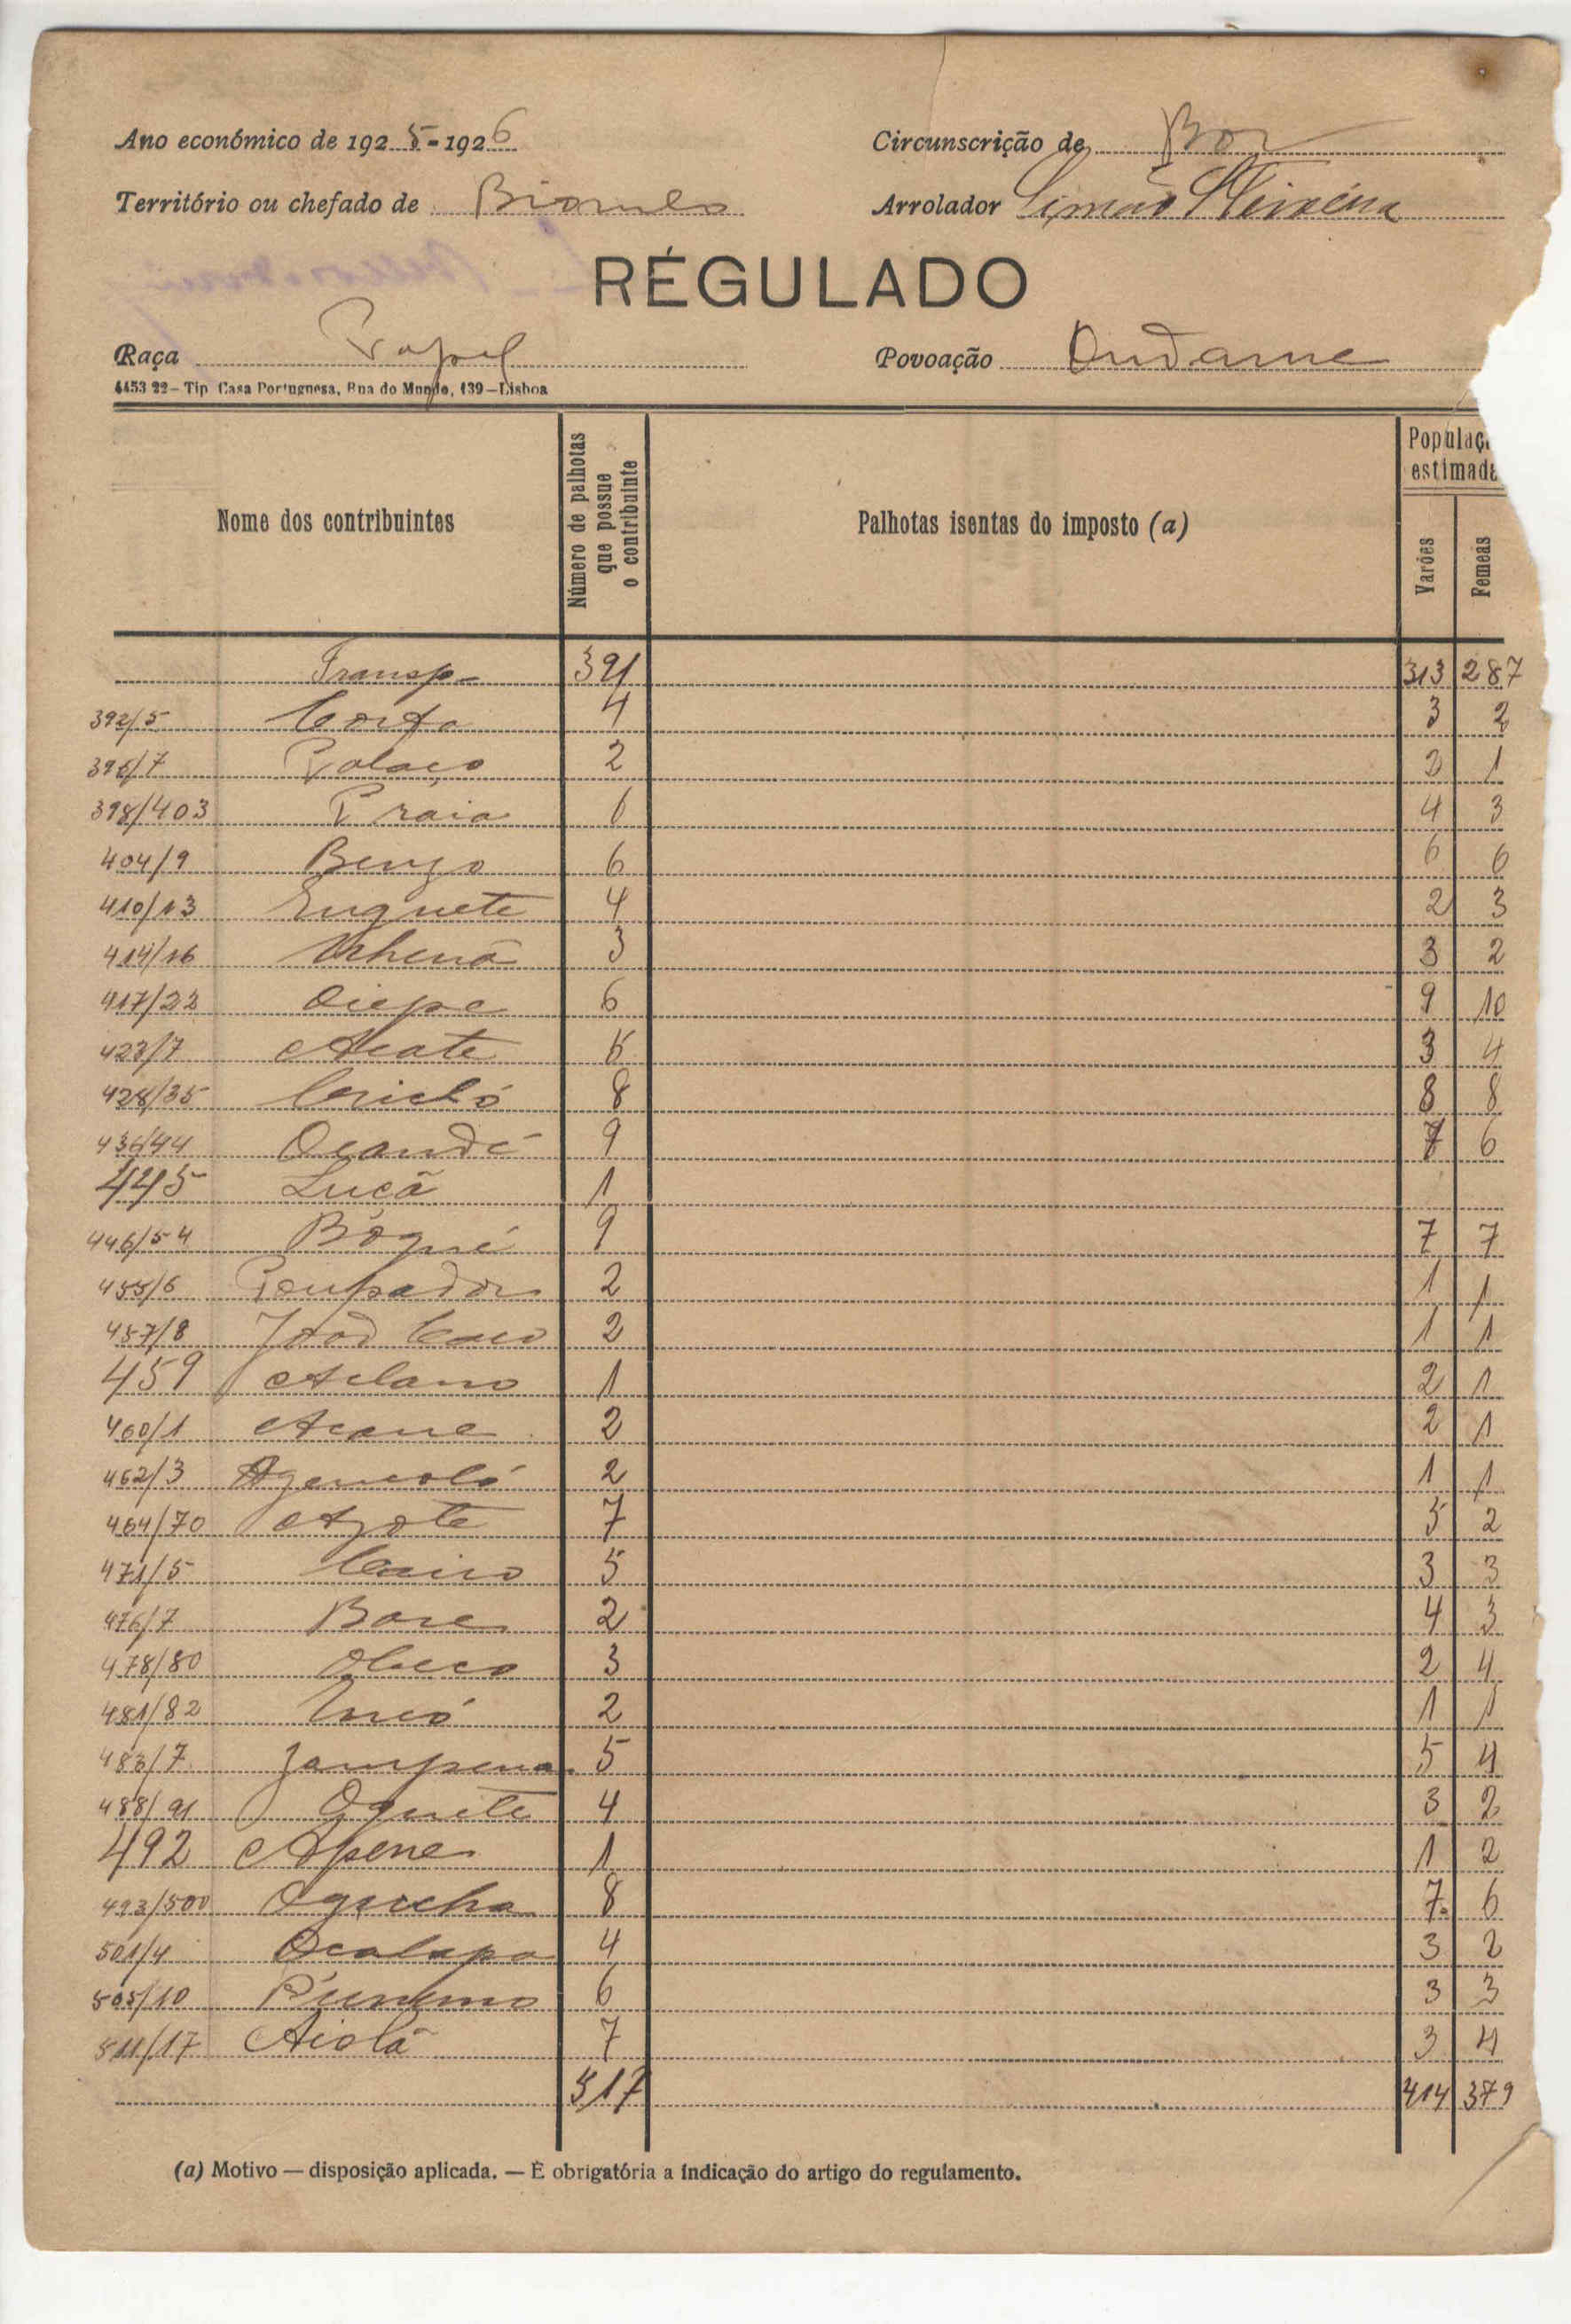 Ano económico de 1925-1926
Circunscrição de Bor
Território ou chefado de Biombo
Arrolador Simão
RÉGULADO
Raça Papel
Povoação Ondame
4453 22 — Tip. Casa Portuguesa, Rua do Mundo, 139 — Lisboa
Nome dos contribuintes
Número de palhotas que possue o contribuinte
Palhotas isentas do imposto (a)
Populaç
estimada
Varões
Femeas
Transp— 391 313 287
392/5 4 3 2
396/7 Palaço 2 2 1
398/403 Praia 6 4 3
404/9 Bengo 6 6 6
410/13 Enquete 4 2 3
414/16 3 3 2
417/22 Oiepe 6 9 10
423/7 Acate 5 3 4
428/35 8 8 8
436/44 Ocandé 9 7 6
445 Lucã 1
446/54 Bóqué 9 7 7
455/6 Poupador 2 1 1
457/8 João Caco 2 1 1
459 1 2 1
460/1 Acane 2 2 1
462/3 2 1 1
464/70 Azote 7 5 2
471/5 5 3 3
476/7 2 4 3
478/80 3 2 4
481/82 2 1 1
483/7 Jampena 5 5 4
488/91 Oquete 4 3 2
492 Apene 1 1 2
493/500 Ogucha 8 7 6
501/4 Ocalapa 4 3 2
505/10 6 3 3
511/17 Aiolã 7 3 4
517 414 379
(a) Motivo — disposição aplicada. — É obrigatória a indicação do artigo do regulamento.